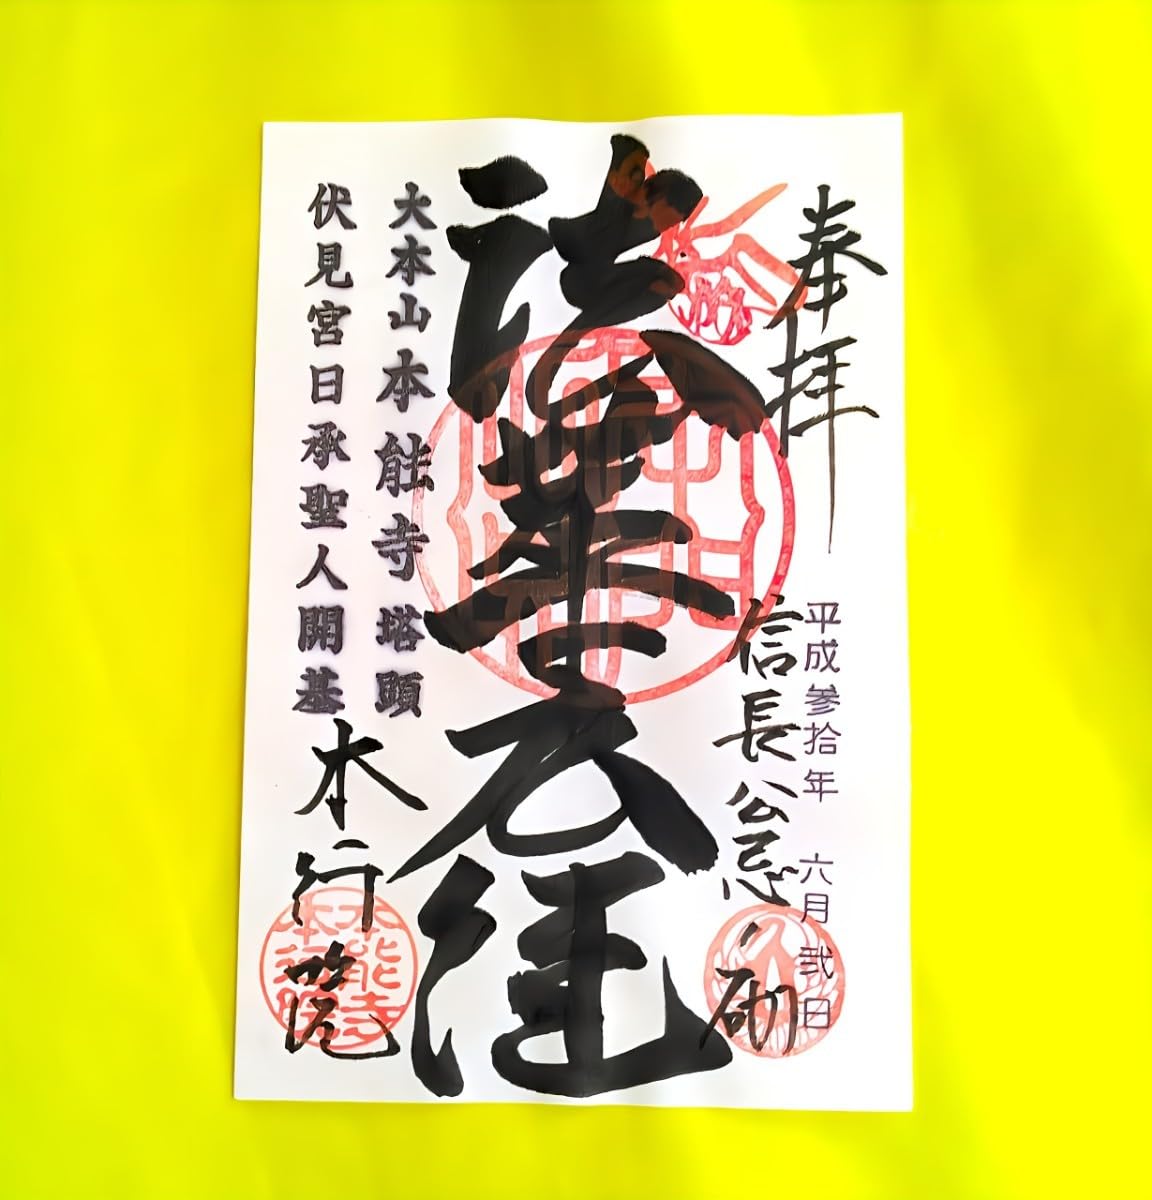 奉拝
平成参拾年 六月弐日
信長公忌ノ砌
法華
大本山本能寺塔頭
伏見宮日承聖人開基
本行院
本能寺
本行院